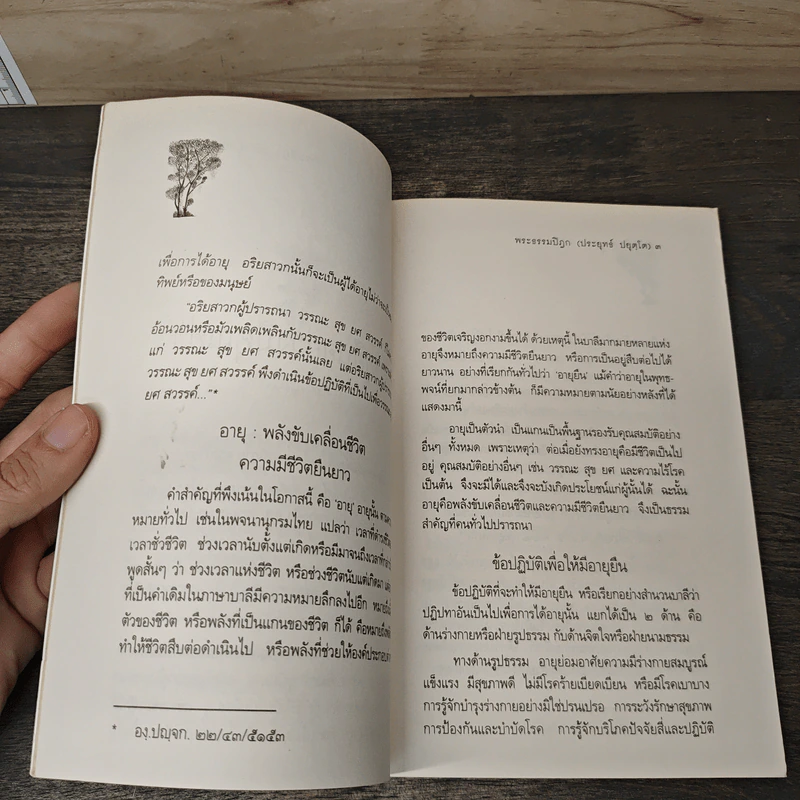 เพื่อการได้อายุ อริยสาวกนั้นก็จะเป็นผู้ได้อายุไม่ว่าจะเป็น
ทิพย์หรือของมนุษย์
"อริยสาวกผู้ปรารถนา วรรณะ สุข ยศ สวรรค์
อ้อนวอนหรือมัวเพลิดเพลินกับวรรณะ สุข ยศ สวรรค์
แก่ วรรณะ สุข ยศ สวรรค์นั้นเลย แต่อริยสาวก
วรรณะ สุข ยศ สวรรค์ พึงดำเนินข้อปฏิบัติที่เป็นไปเพื่อ
ยศ สวรรค์..."*
อายุ : พลังขับเคลื่อนชีวิต
ความมีชีวิตยืนยาว
คำสำคัญที่พึงเน้นในโอกาสนี้ คือ 'อายุ' อายุนั้น
หมายทั่วไป เช่นในพจนานุกรมไทย แปลว่า เวลาที่
เวลาชั่วชีวิต ช่วงเวลานับตั้งแต่เกิดหรือมีมาจนถึง
พูดสั้นๆ ว่า ช่วงเวลาแห่งชีวิต หรือช่วงชีวิตนับแต่เกิดมา
ที่เป็นคำเดิมในภาษาบาลีมีความหมายลึกลงไปอีก
ตัวของชีวิต หรือพลังที่เป็นแกนของชีวิต ก็ได้ คือหมายถึง
ทำให้ชีวิตสืบต่อดำเนินไป หรือพลังที่ช่วยให้องค์ประกอบ
* องฺ.ปญฺจก. ๒๒/๔๓/๕๑-๕๓
พระธรรมปิฎก (ประยุทธ์ ปยุตฺโต) ๓
ของชีวิตเจริญงอกงามขึ้นได้ ด้วยเหตุนี้ ในบาลีมากมายหลายแห่ง
อายุจึงหมายถึงความมีชีวิตยืนยาว หรือการเป็นอยู่สืบต่อไปได้
ยาวนาน อย่างที่เรียกกันทั่วไปว่า 'อายุยืน' แม้คำว่าอายุในพุทธ-
พจน์ที่ยกมากล่าวข้างต้น ก็มีความหมายตามนัยอย่างหลังที่ได้
แสดงมานี้
อายุเป็นตัวนำ เป็นแกนเป็นพื้นฐานรองรับคุณสมบัติอย่าง
อื่นๆ ทั้งหมด เพราะเหตุว่า ต่อเมื่อยังทรงอายุคือมีชีวิตเป็นไป
อยู่ คุณสมบัติอย่างอื่นๆ เช่น วรรณะ สุข ยศ และความไร้โรค
เป็นต้น จึงจะมีได้และจึงจะบังเกิดประโยชน์แก่ผู้นั้นได้ ฉะนั้น
อายุคือพลังขับเคลื่อนชีวิตและความมีชีวิตยืนยาว จึงเป็นธรรม
สำคัญที่คนทั่วไปปรารถนา
ข้อปฏิบัติเพื่อให้มีอายุยืน
ข้อปฏิบัติที่จะทำให้มีอายุยืน หรือเรียกอย่างสำนวนบาลีว่า
ปฏิปทาอันเป็นไปเพื่อการได้อายุนั้น แยกได้เป็น ๒ ด้าน คือ
ด้านร่างกายหรือฝ่ายรูปธรรม กับด้านจิตใจหรือฝ่ายนามธรรม
ทางด้านรูปธรรม อายุย่อมอาศัยความมีร่างกายสมบูรณ์
แข็งแรง มีสุขภาพดี ไม่มีโรคร้ายเบียดเบียน หรือมีโรคเบาบาง
การรู้จักบำรุงร่างกายอย่างมิใช่ปรนเปรอ การระวังรักษาสุขภาพ
การป้องกันและบำบัดโรค การรู้จักบริโภคปัจจัยสี่และปฏิบัติ